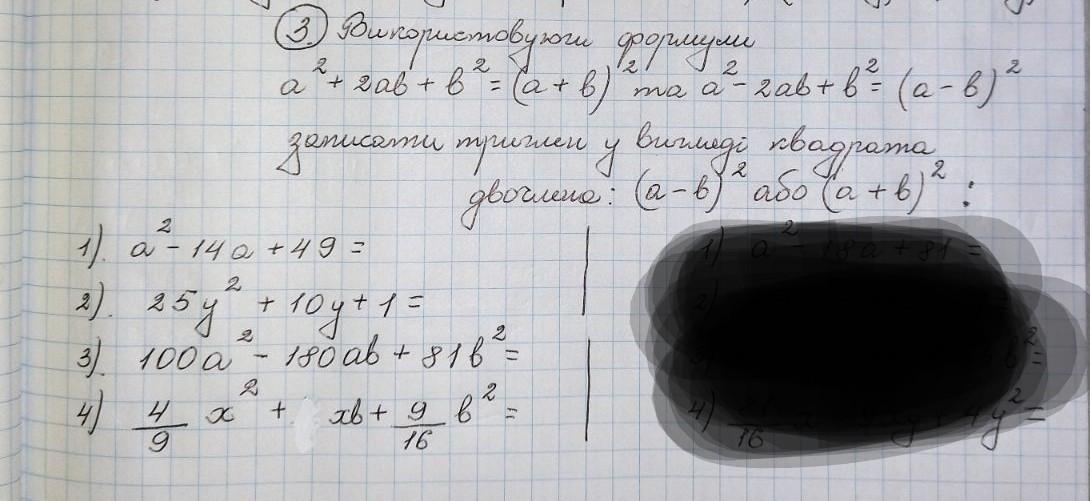 3 Використовуючи формули
a² + 2ab + b² = (a + b)² та a² - 2ab + b² = (a - b)²
записати тричлен у вигляді квадрата
двочлена: (a - b)² або (a + b)² :
1). a² - 14a + 49 =
2). 25y² + 10y + 1 =
3). 100a² - 180ab + 81b² =
4) 4/9 x² + xb + 9/16 b² =
1) a² - 18a + 81 =
2) =
b² =
4) /16 4y² =